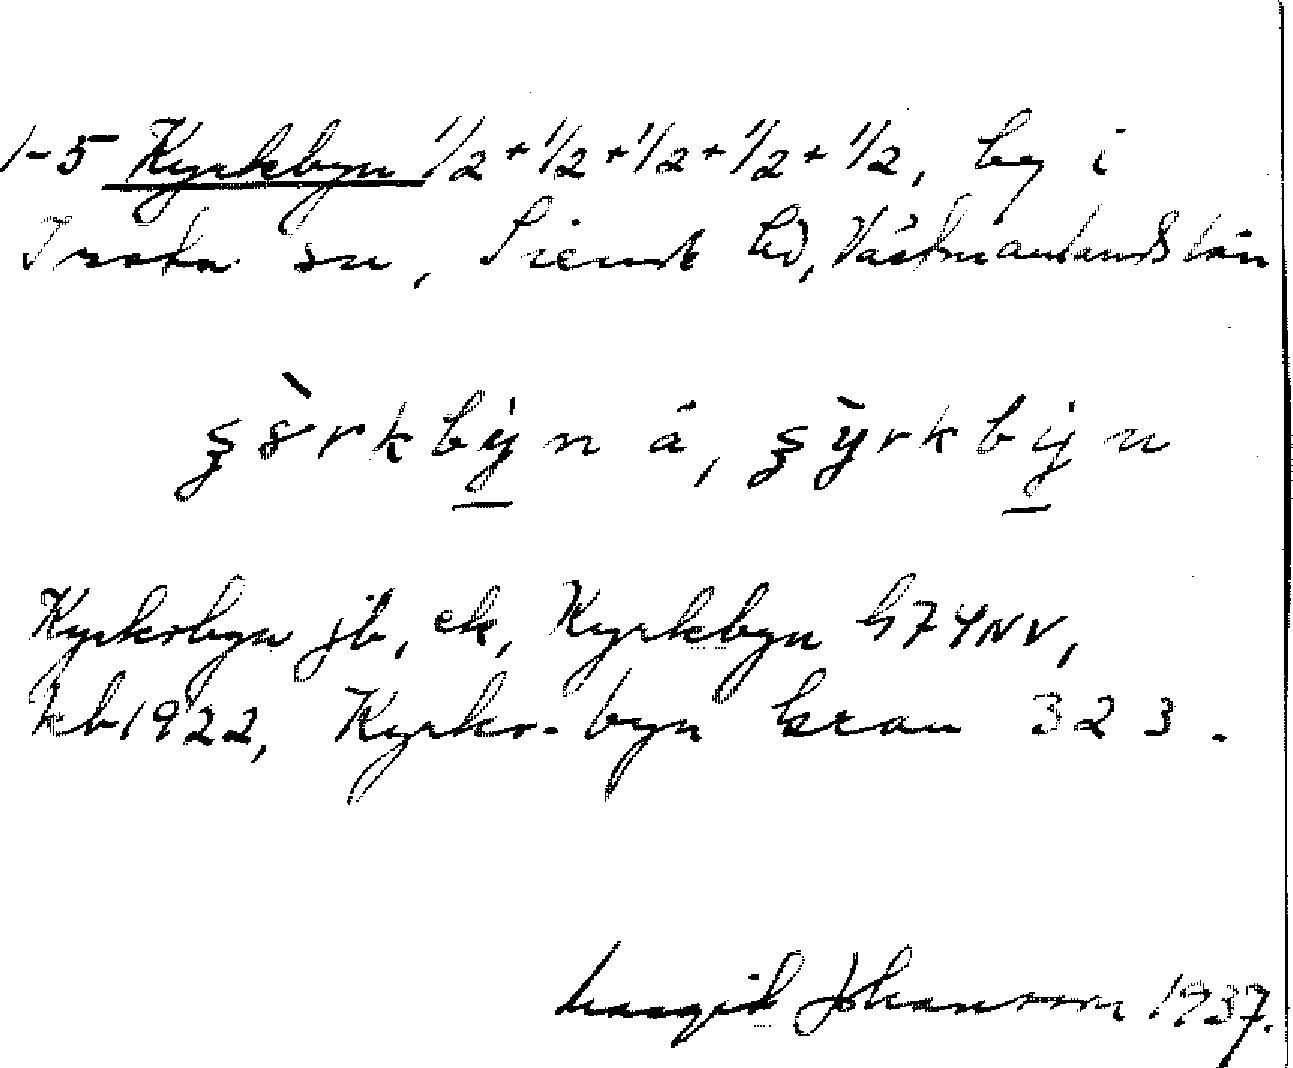 1-5 Kyrkbyn 1/2+1/2+1/2+1/2+1/2, by i
Irsta sn, Siende hd, Västmanlands län
kyrkbỳn á, kỳrkbỳn
Kyrkobyn jb, ek, Kyrkbyn G74NV,
kb1922, Kyrko-byn kran 323.
Margit Johansson 1937.